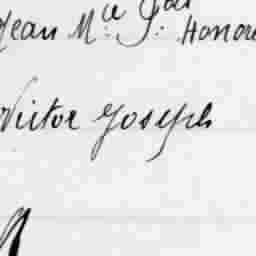 Jean M.ce J. Honoré
Victor Joseph